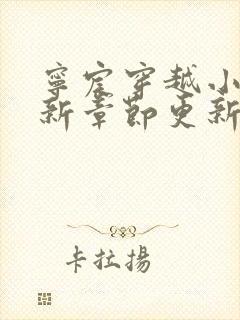 寧宸穿越小
新章節更新
卡拉揚